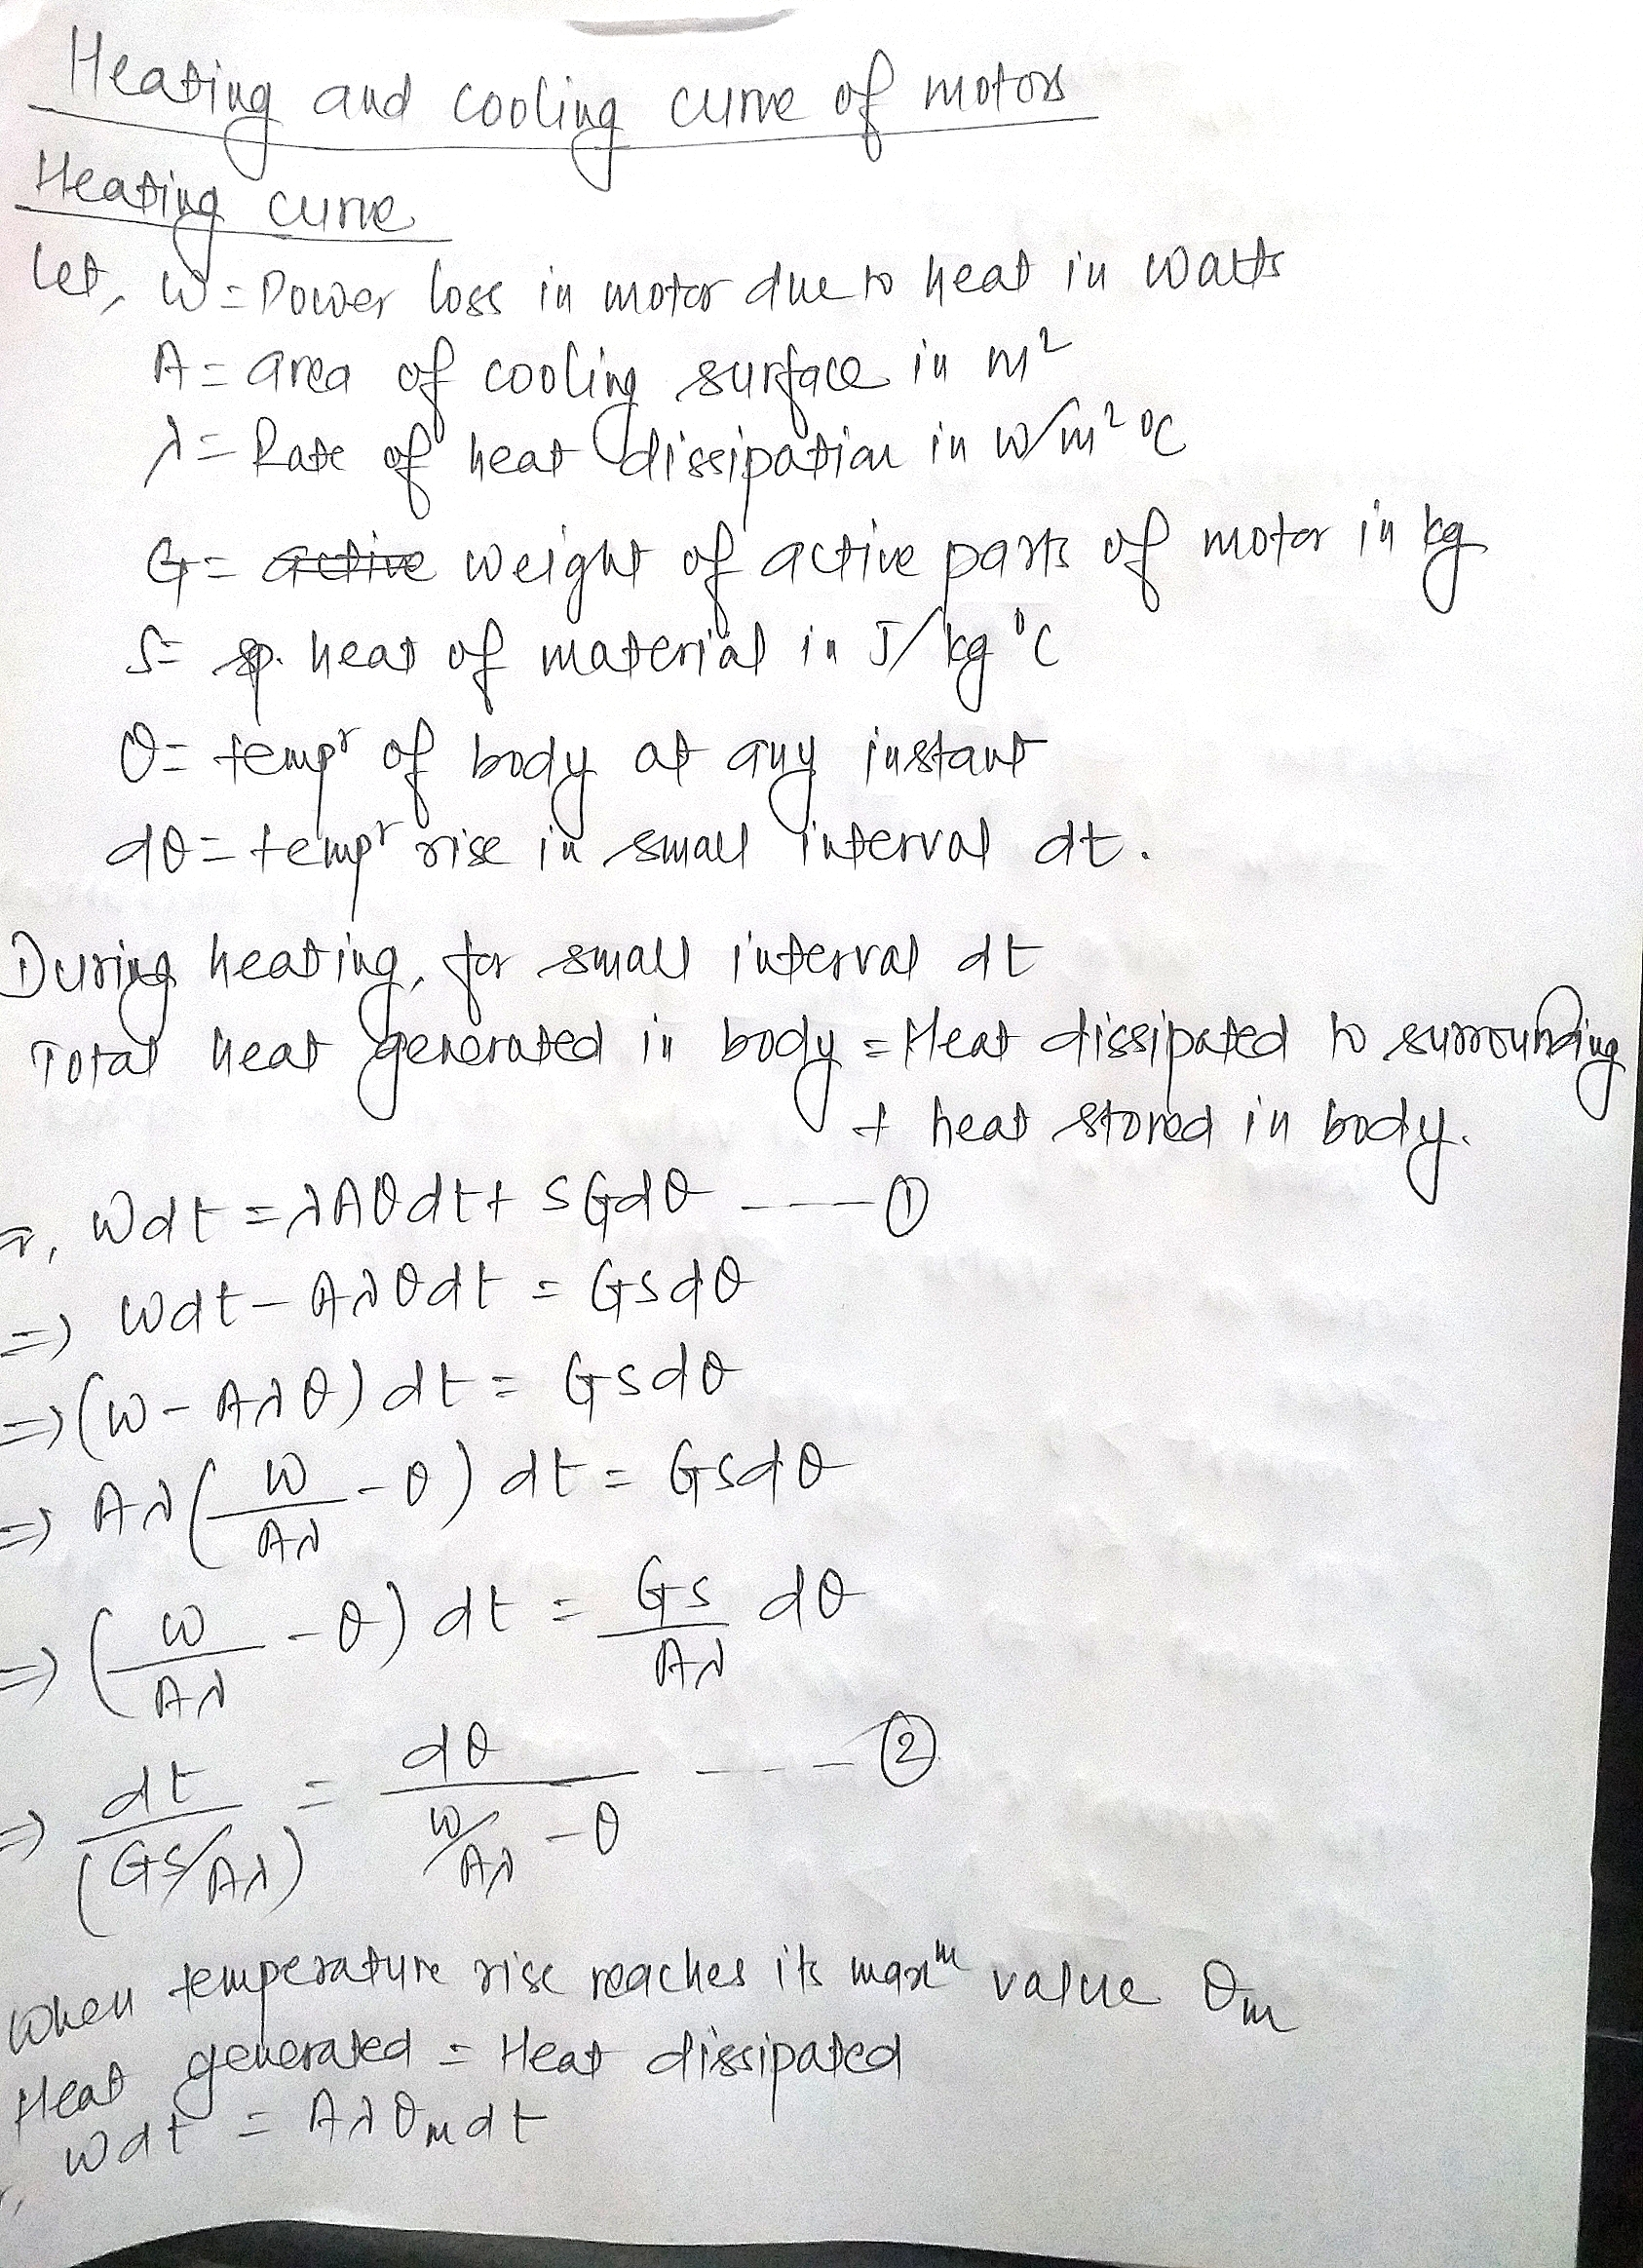 Heating and cooling curve of motors
Heating curve
Let, W = Power loss in motor due to heat in watts
A = area of cooling surface in m²
λ = Rate of heat dissipation in W/m² °C
G = active weight of active parts of motor in kg
S = sp. heat of material in J/kg °C
θ = tempr of body at any instant
dθ = tempr rise in small interval dt.
During heating, for small interval dt
Total heat generated in body = Heat dissipated to surrounding
+ heat stored in body.
or, Wdt = λAθdt + SGdθ ---- ①
=> Wdt - Aλθdt = GSdθ
=> (W - Aλθ) dt = GSdθ
=> Aλ (W/Aλ - θ) dt = GSdθ
=> (W/Aλ - θ) dt = GS/Aλ dθ
=> dt/(GS/Aλ) = dθ/(W/Aλ - θ) ---- ②
When temperature rise reaches its maxm value θm
Heat generated = Heat dissipated
Wdt = Aλθmdt